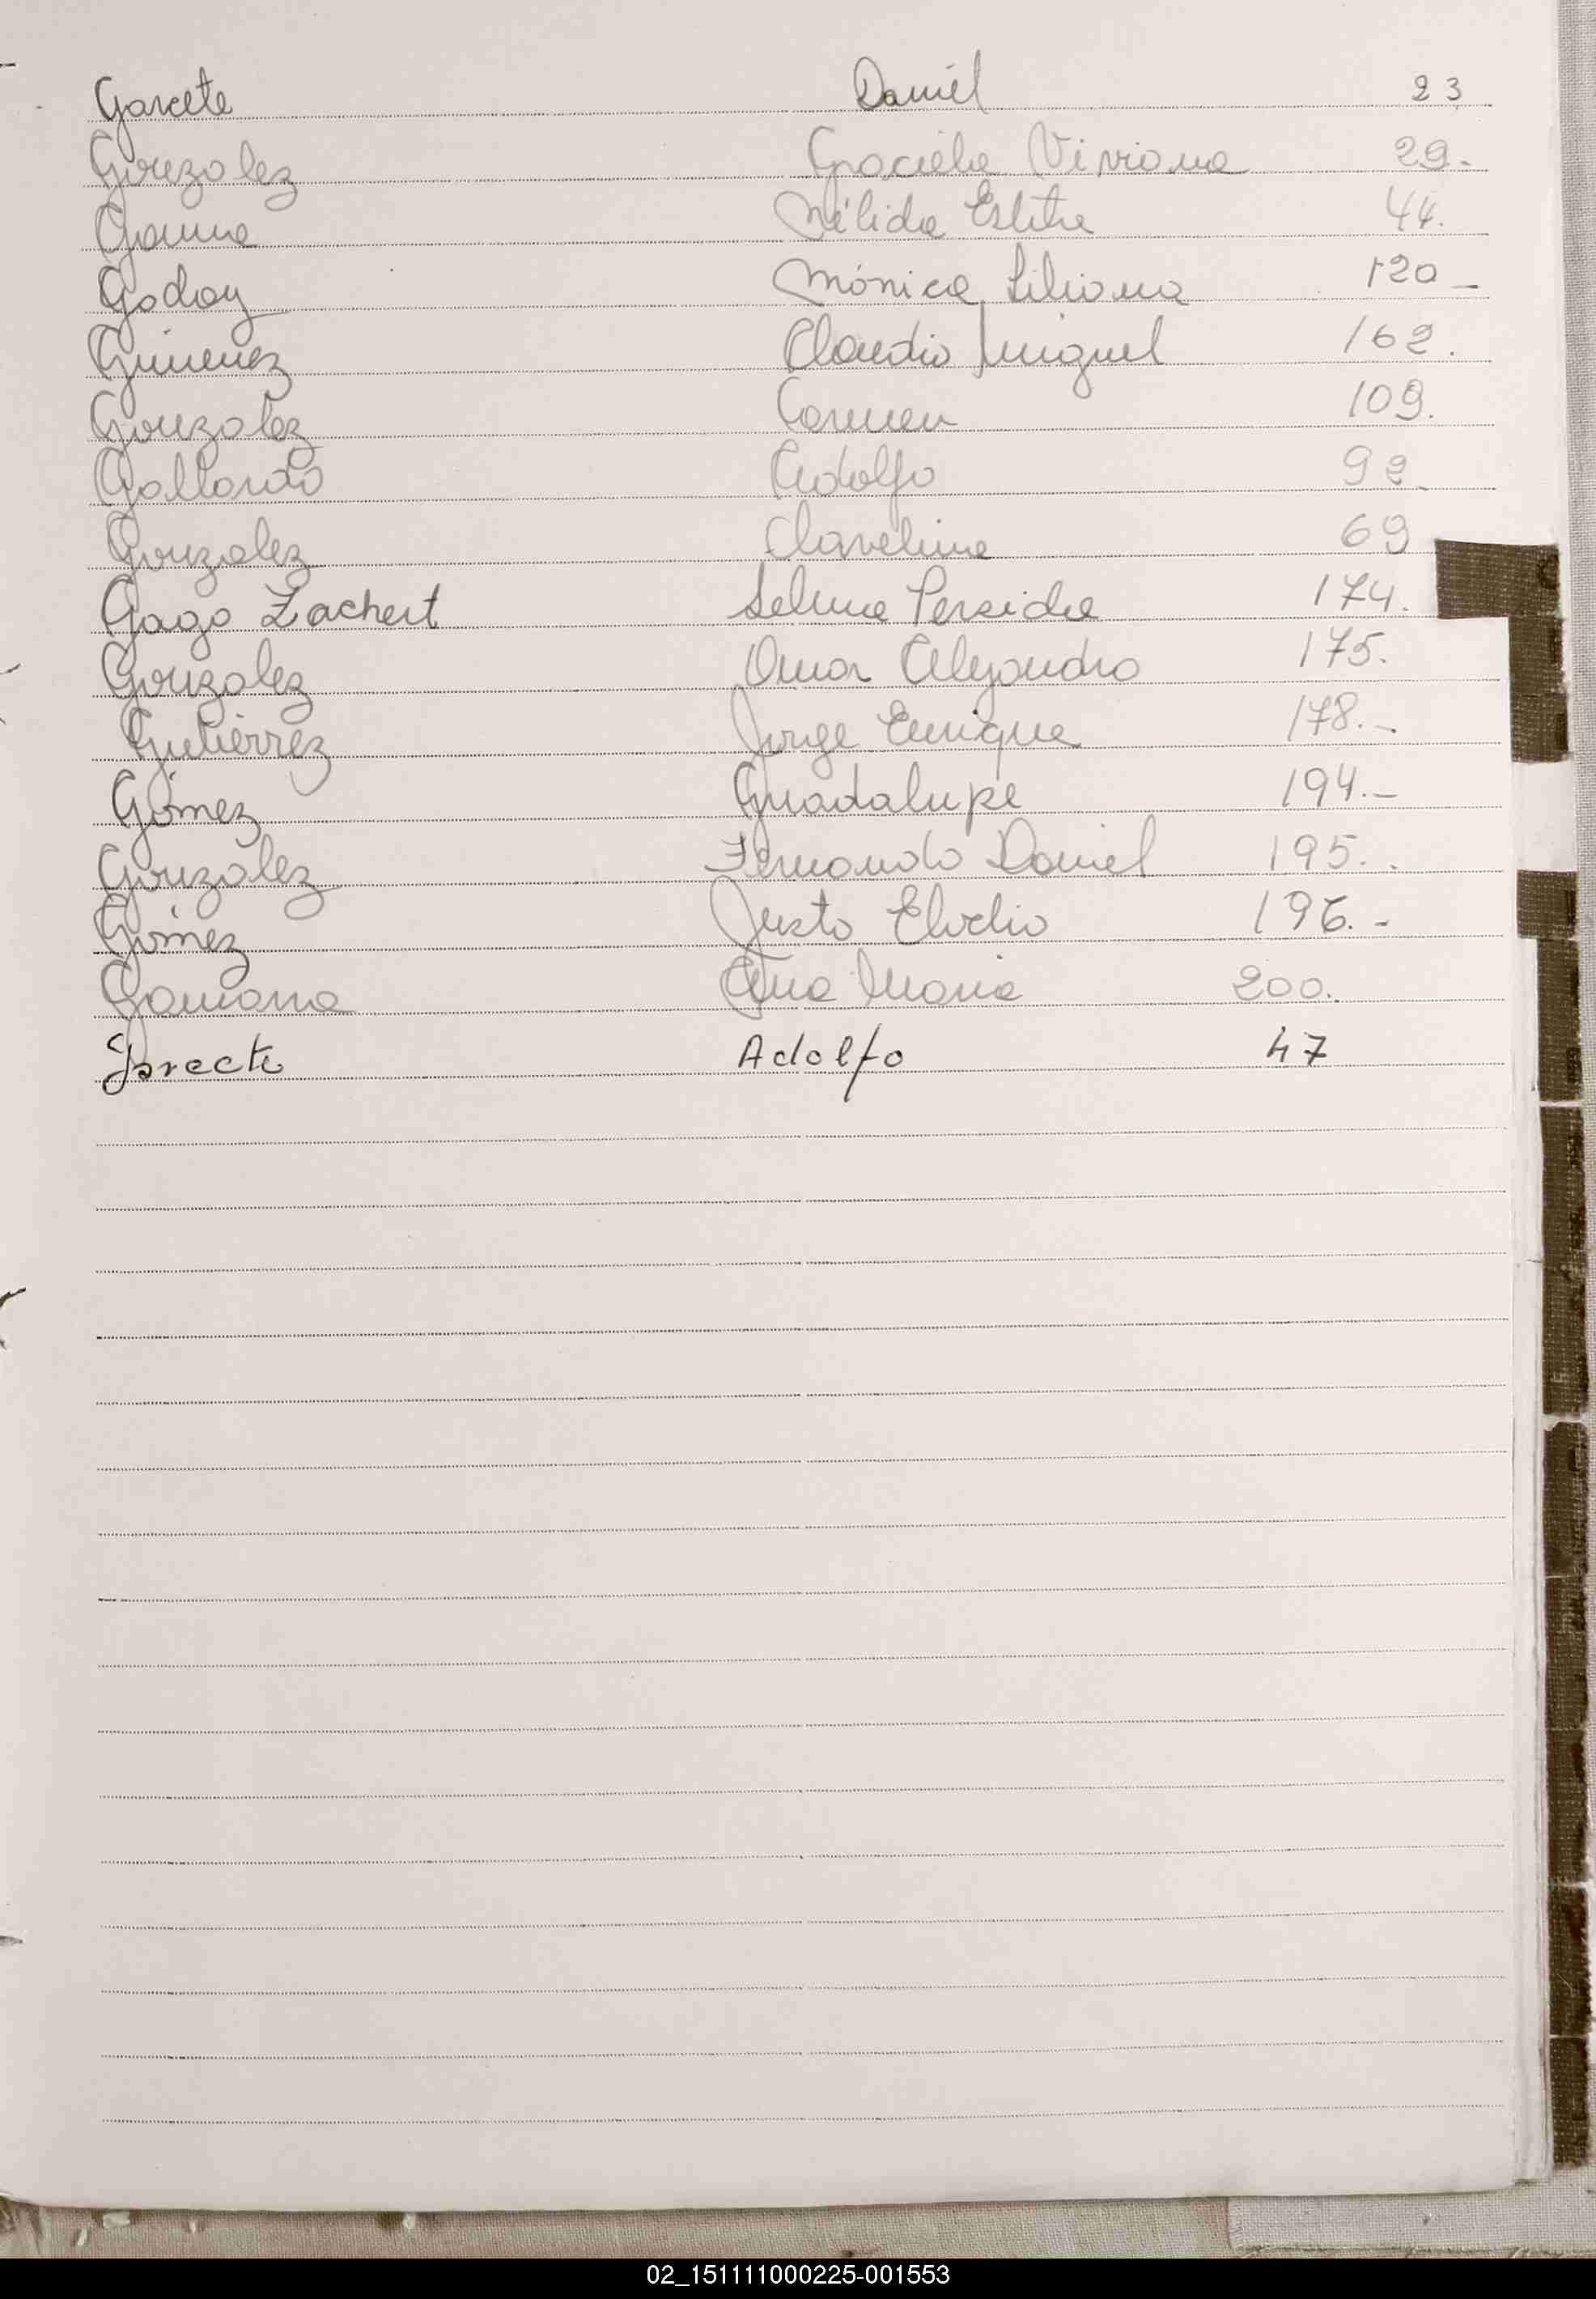 Garcete Daniel 23
Gonzalez Graciela Viviana 29.-
Gauna Nélida Esther 44.
Godoy Mónica Liliana 120 -
Gimenez Claudio Miguel 162.
Gonzalez Carmen 109.
Gallardo Adolfo 92.
Gonzalez Clavelina 69
Gago Zachert Selma Persida 174.
Gonzalez Omar Alejandro 175.
Gutiérrez Jorge Enrique 178.-
Gómez Guadalupe 194.-
Gonzalez Fernando Daniel 195.
Gómez Justo Elvelio 196.-
Gamarra Ana Maria 200.
Adolfo 47
02_151111000225-001553